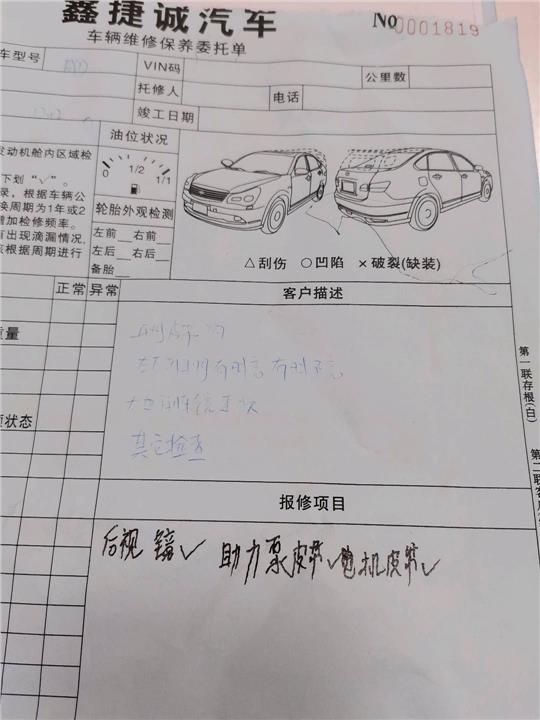 鑫捷诚汽车
No 0001819
车辆维修保养委托单
车型号
VIN码
公里数
托修人
电话
竣工日期
发动机舱内区域检
下划“√”。
录，根据车辆公
换周期为1年或2
增加检修频率。
有出现滴漏情况，
该根据周期进行
油位状况
0 1/2 1/1
轮胎外观检测
左前 右前
左后 右后
备胎
△刮伤 ○凹陷 ×破裂(缺装)
正常 异常
客户描述
质量
有时 有时不
液状态
其它检查
第一联存根(白)
第二联客
报修项目
后视镜√ 助力泵皮带√ 电机皮带√